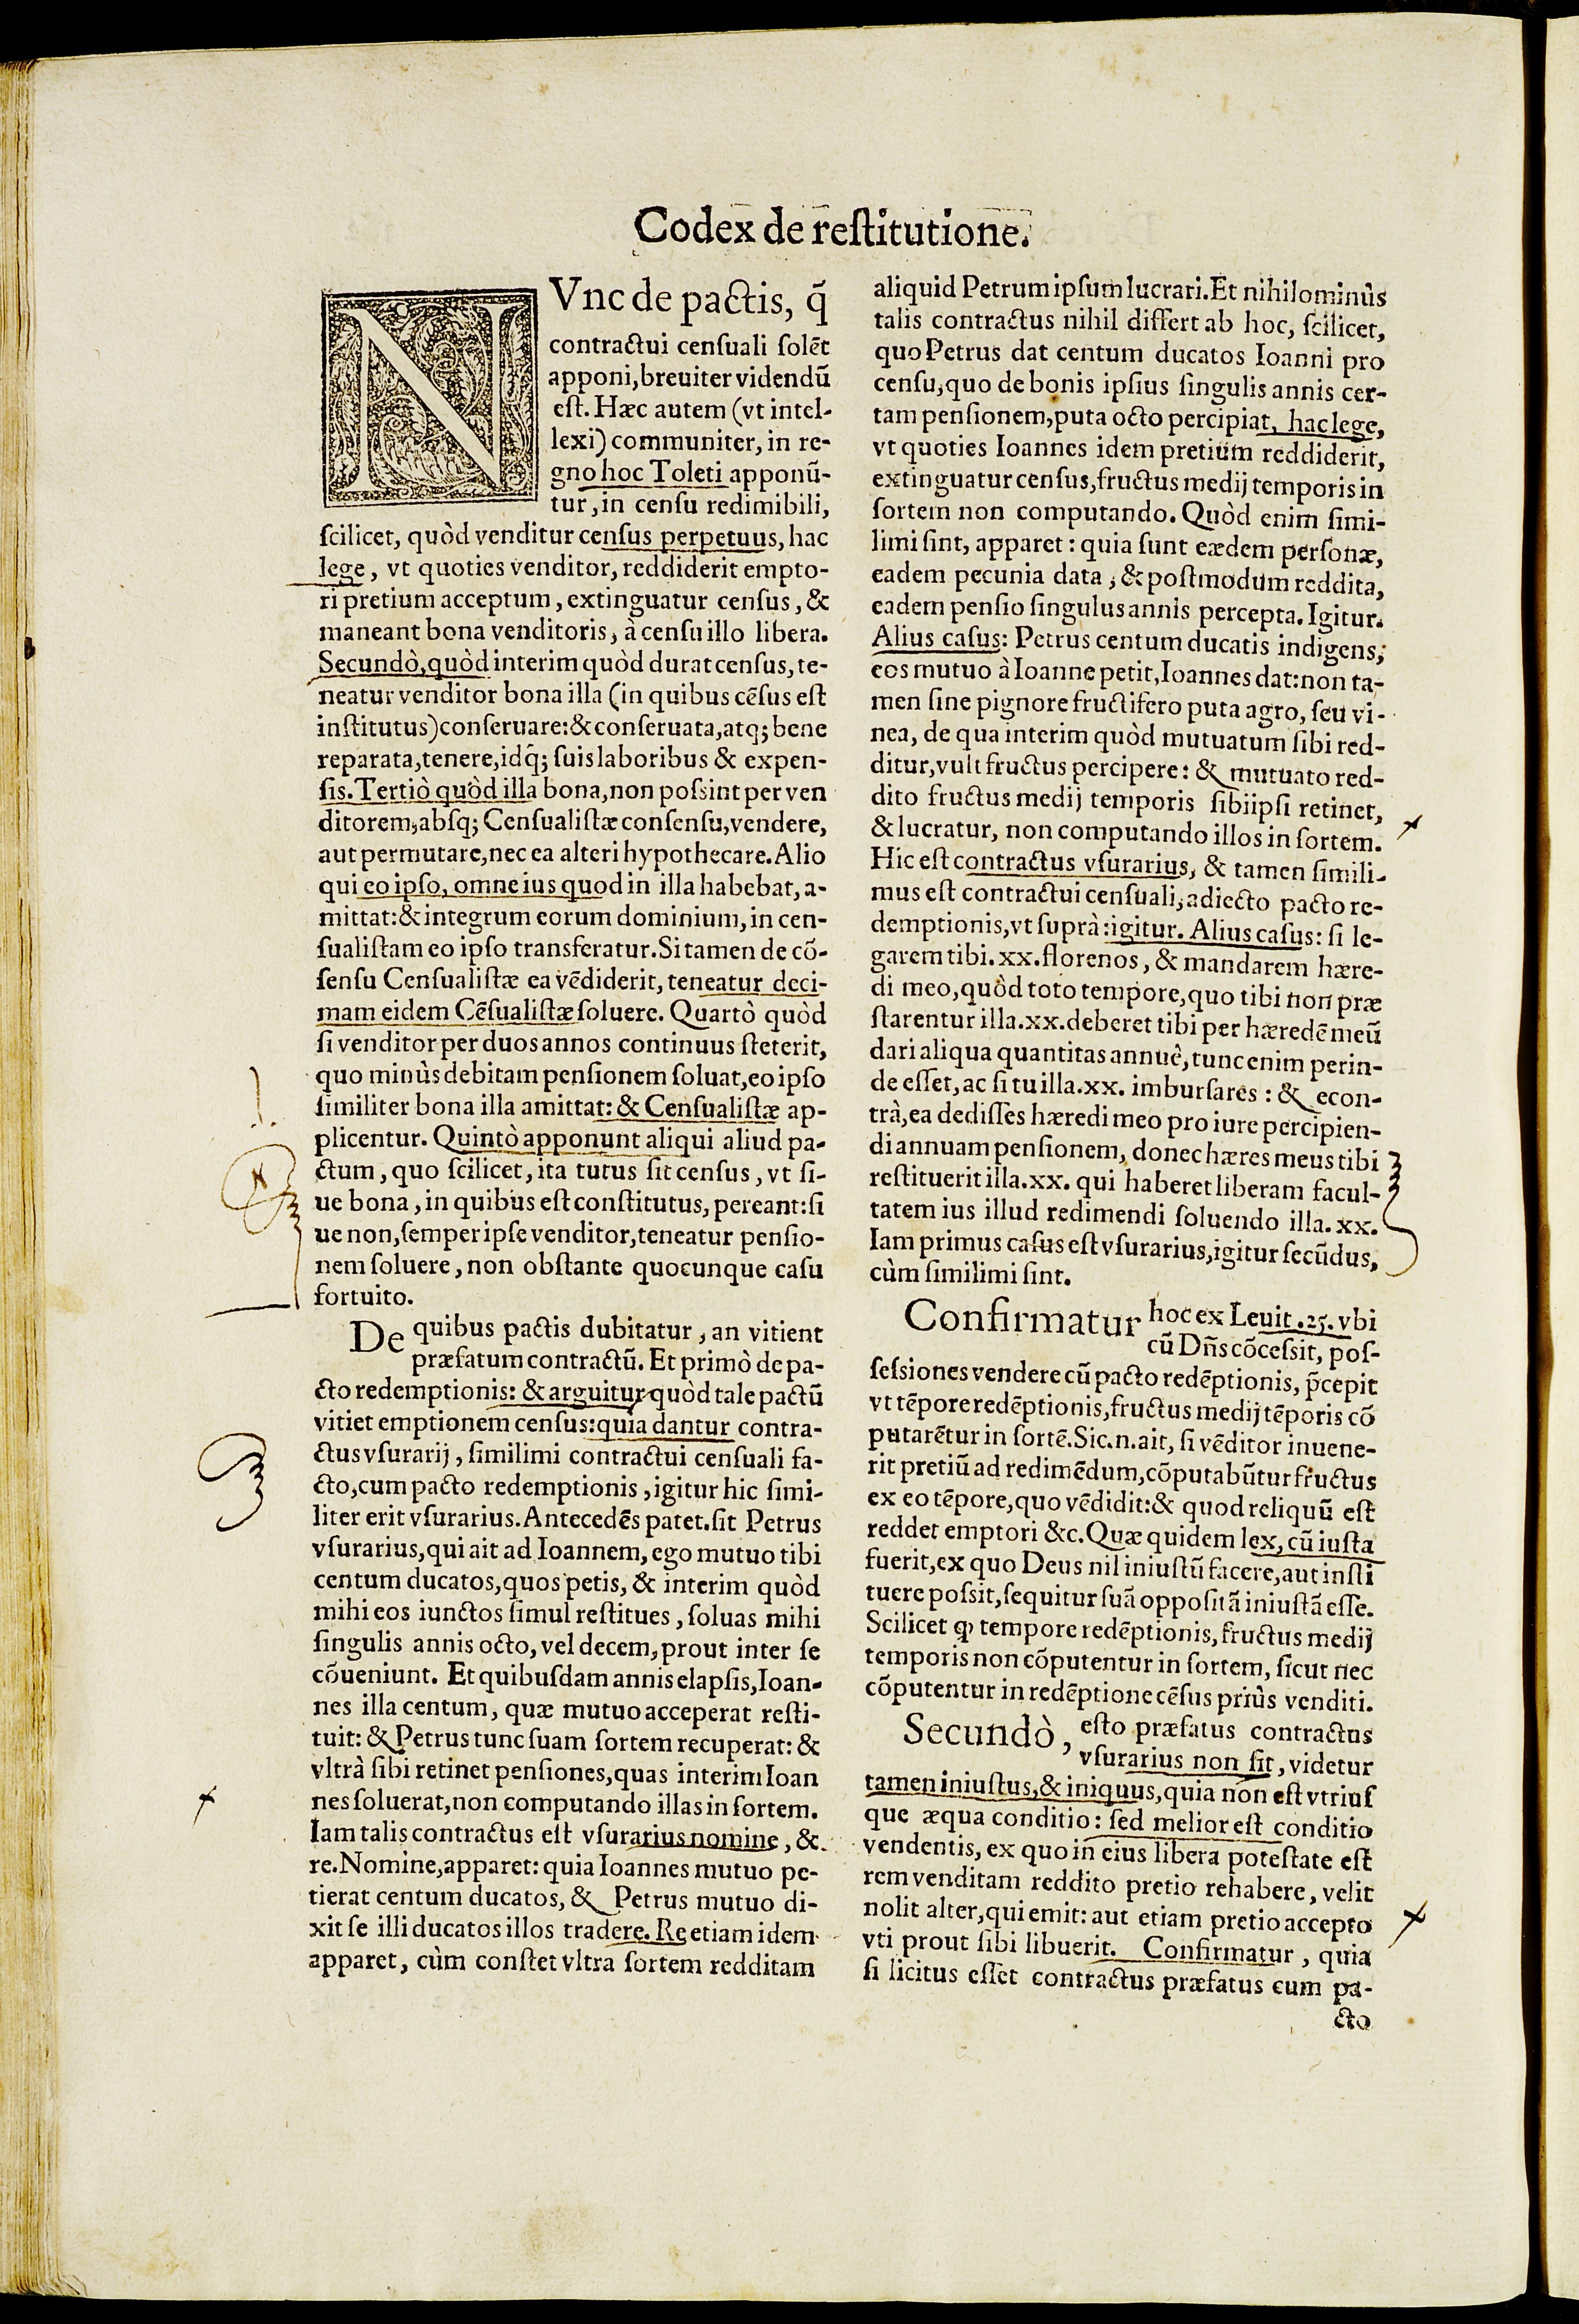 Codex de reſtitutione.
NVnc de pactis, q̃
contractui cenſuali ſolẽt
apponi, breuiter videndũ
eſt. Hæc autem (vt intel-
lexi) communiter, in re-
gno hoc Toleti apponũ-
tur, in cenſu redimibili,
ſcilicet, quòd venditur cenſus perpetuus, hac
lege, vt quoties venditor, reddiderit empto-
ri pretium acceptum, extinguatur cenſus, &
maneant bona venditoris, à cenſu illo libera.
Secundò, quòd interim quòd durat cenſus, te-
neatur venditor bona illa (in quibus cẽſus eſt
inſtitutus) conſeruare: & conſeruata, atq; bene
reparata, tenere, idq̃; ſuis laboribus & expen-
ſis. Tertiò quòd illa bona, non poſsint per ven
ditorem, abſq; Cenſualiſtæ conſenſu, vendere,
aut permutare, nec ea alteri hypothecare. Alio
qui eo ipſo, omne ius quod in illa habebat, a-
mittat: & integrum eorum dominium, in cen-
ſualiſtam eo ipſo transferatur. Si tamen de cõ-
ſenſu Cenſualiſtæ ea vẽdiderit, teneatur deci-
mam eidem Cẽſualiſtæ ſoluere. Quartò quòd
ſi venditor per duos annos continuus ſteterit,
quo minùs debitam penſionem ſoluat, eo ipſo
ſimiliter bona illa amittat: & Cenſualiſtæ ap-
plicentur. Quintò apponunt aliqui aliud pa-
ctum, quo ſcilicet, ita tutus ſit cenſus, vt ſi-
ue bona, in quibus eſt conſtitutus, pereant: ſi
ue non, ſemper ipſe venditor, teneatur penſio-
nem ſoluere, non obſtante quocunque caſu
fortuito.
De quibus pactis dubitatur, an vitient
præfatum contractũ. Et primò de pa-
cto redemptionis: & arguitur quòd tale pactũ
vitiet emptionem cenſus: quia dantur contra-
ctus vſurarij, ſimilimi contractui cenſuali fa-
cto, cum pacto redemptionis, igitur hic ſimi-
liter erit vſurarius. Antecedẽs patet. ſit Petrus
vſurarius, qui ait ad Ioannem, ego mutuo tibi
centum ducatos, quos petis, & interim quòd
mihi eos iunctos ſimul reſtitues, ſoluas mihi
ſingulis annis octo, vel decem, prout inter ſe
cõueniunt. Et quibuſdam annis elapſis, Ioan-
nes illa centum, quæ mutuo acceperat reſti-
tuit: & Petrus tunc ſuam ſortem recuperat: &
vltrà ſibi retinet penſiones, quas interim Ioan
nes ſoluerat, non computando illas in ſortem.
Iam talis contractus eſt vſurarius nomine, &
re. Nomine, apparet: quia Ioannes mutuo pe-
tierat centum ducatos, & Petrus mutuo di-
xit ſe illi ducatos illos tradere. Re etiam idem
apparet, cùm conſtet vltra ſortem redditam
aliquid Petrum ipſum lucrari. Et nihilominùs
talis contractus nihil differt ab hoc, ſcilicet,
quo Petrus dat centum ducatos Ioanni pro
cenſu, quo de bonis ipſius ſingulis annis cer-
tam penſionem, puta octo percipiat, hac lege,
vt quoties Ioannes idem pretium reddiderit,
extinguatur cenſus, fructus medij temporis in
ſortem non computando. Quòd enim ſimi-
limi ſint, apparet: quia ſunt eædem perſonæ,
eadem pecunia data, & poſtmodum reddita,
eadem penſio ſingulus annis percepta. Igitur.
Alius caſus: Petrus centum ducatis indigens,
eos mutuo à Ioanne petit, Ioannes dat: non ta-
men ſine pignore fructifero puta agro, ſeu vi-
nea, de qua interim quòd mutuatum ſibi red-
ditur, vult fructus percipere: & mutuato red-
dito fructus medij temporis ſibiipſi retinet,
& lucratur, non computando illos in ſortem.
Hic eſt contractus vſurarius, & tamen ſimili-
mus eſt contractui cenſuali, adiecto pacto re-
demptionis, vt ſuprà: igitur. Alius caſus: ſi le-
garem tibi. xx. florenos, & mandarem hære-
di meo, quòd toto tempore, quo tibi non præ
ſtarentur illa. xx. deberet tibi per hæredẽ meũ
dari aliqua quantitas annuè, tunc enim perin-
de eſſet, ac ſi tu illa. xx. imburſares: & econ-
trà, ea dediſſes hæredi meo pro iure percipien-
di annuam penſionem, donec hæres meus tibi
reſtituerit illa. xx. qui haberet liberam facul-
tatem ius illud redimendi ſoluendo illa. xx.
Iam primus caſus eſt vſurarius, igitur ſecũdus,
cùm ſimilimi ſint.
Confirmatur hoc ex Leuit. 25. vbi
cũ Dñs cõceſsit, poſ-
ſeſsiones vendere cũ pacto redẽptionis, p̃cepit
vt tẽpore redẽptionis, fructus medij tẽporis cõ
putarẽtur in ſortẽ. Sic. n. ait, ſi vẽditor inuene-
rit pretiũ ad redimẽdum, cõputabũtur fructus
ex eo tẽpore, quo vẽdidit: & quod reliquũ eſt
reddet emptori &c. Quæ quidem lex, cũ iuſta
fuerit, ex quo Deus nil iniuſtũ facere, aut inſti
tuere poſsit, ſequitur ſuã oppoſitã iniuſtã eſſe.
Scilicet ꝙ tempore redẽptionis, fructus medij
temporis non cõputentur in ſortem, ſicut nec
cõputentur in redẽptione cẽſus priùs venditi.
Secundò, eſto præfatus contractus
vſurarius non ſit, videtur
tamen iniuſtus, & iniquus, quia non eſt vtriuſ
que æqua conditio: ſed melior eſt conditio
vendentis, ex quo in eius libera poteſtate eſt
rem venditam reddito pretio rehabere, velit
nolit alter, qui emit: aut etiam pretio accepto
vti prout ſibi libuerit. Confirmatur, quia
ſi licitus eſſet contractus præfatus cum pa-
cto